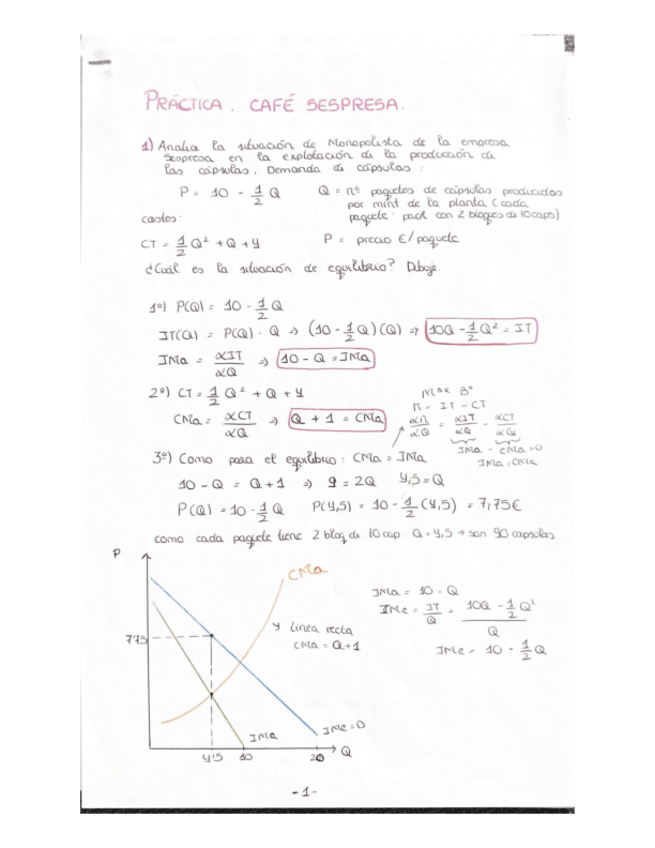 PRÁCTICA. CAFÉ SESPRESA.
1) Analia la situación de Monopolista de la empresa
Sespresa en la explotación de la producción de
las cápsulas. Demanda de cápsulas:
P = 10 - 1/2 Q
Q = nº paquetes de cápsulas producidos
por mint de la planta (cada
paquete: pack con 2 bloques de 10 caps)
costes:
CT = 1/2 Q² + Q + 4
P = precio €/paquete
¿Cuál es la situación de equilibrio? Dibuje.
1º) P(Q) = 10 - 1/2 Q
IT(Q) = P(Q) · Q ⇒ (10 - 1/2 Q)(Q) ⇒ 10Q - 1/2 Q² = IT
IMa = αIT/αQ ⇒ 10 - Q = IMa
2º) CT = 1/2 Q² + Q + 4
CMa = αCT/αQ ⇒ Q + 1 = CMa
Max Bº
π = IT - CT
απ/αQ = αIT/αQ - αCT/αQ
IMa - CMa = 0
IMa = CMa
3º) Como para el equilibrio: CMa = IMa
10 - Q = Q + 1 ⇒ 9 = 2Q 4,5 = Q
P(Q) = 10 - 1/2 Q P(4,5) = 10 - 1/2 (4,5) = 7,75€
como cada paquete tiene 2 bloq de 10 cap Q = 4,5 → son 90 capsulas
P
CMa
7'75
Linea recta
CMa = Q + 1
IMa
IMe = D
4'5
10
20
Q
IMa = 10 - Q
IMe = IT/Q = 10Q - 1/2 Q² / Q
IMe = 10 - 1/2 Q
- 1 -